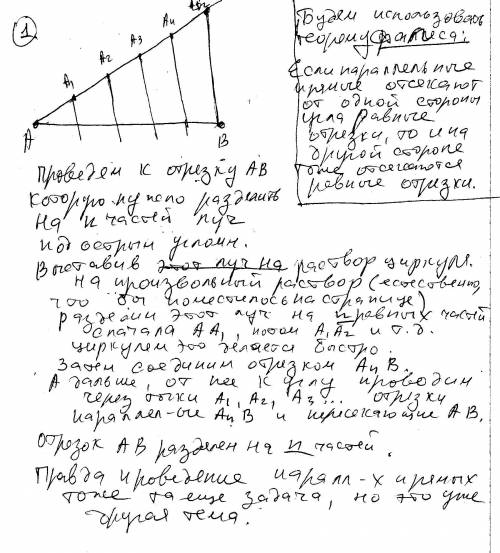 1
A
A1
A2
A3
A4
B
Будем использовать
теорему фалеса:
Если параллельные
прямые отсекают
от одной стороны
угла равные
отрезки, то и на
другой стороне
тоже отсекаются
равные отрезки.
Проведем к отрезку AB
которую нужно разделить
на n частей луч
под острым углом.
Выставив этот луч на раствор циркуля.
на произвольный раствор (естественно,
что бы поместилось на странице)
разделим этот луч на n равных частей
сначала AA1, потом A1A2 и т.д.
циркулем это делается быстро.
Затем соединим отрезком AnB.
А дальше, от нее к углу проводим
через точки A1, A2, A3... отрезки
параллел-ые AnB и пересекающие AB.
Отрезок AB разделен на n частей.
Правда проведение паралл-х прямых
тоже та еще задача, но это уже
другая тема.